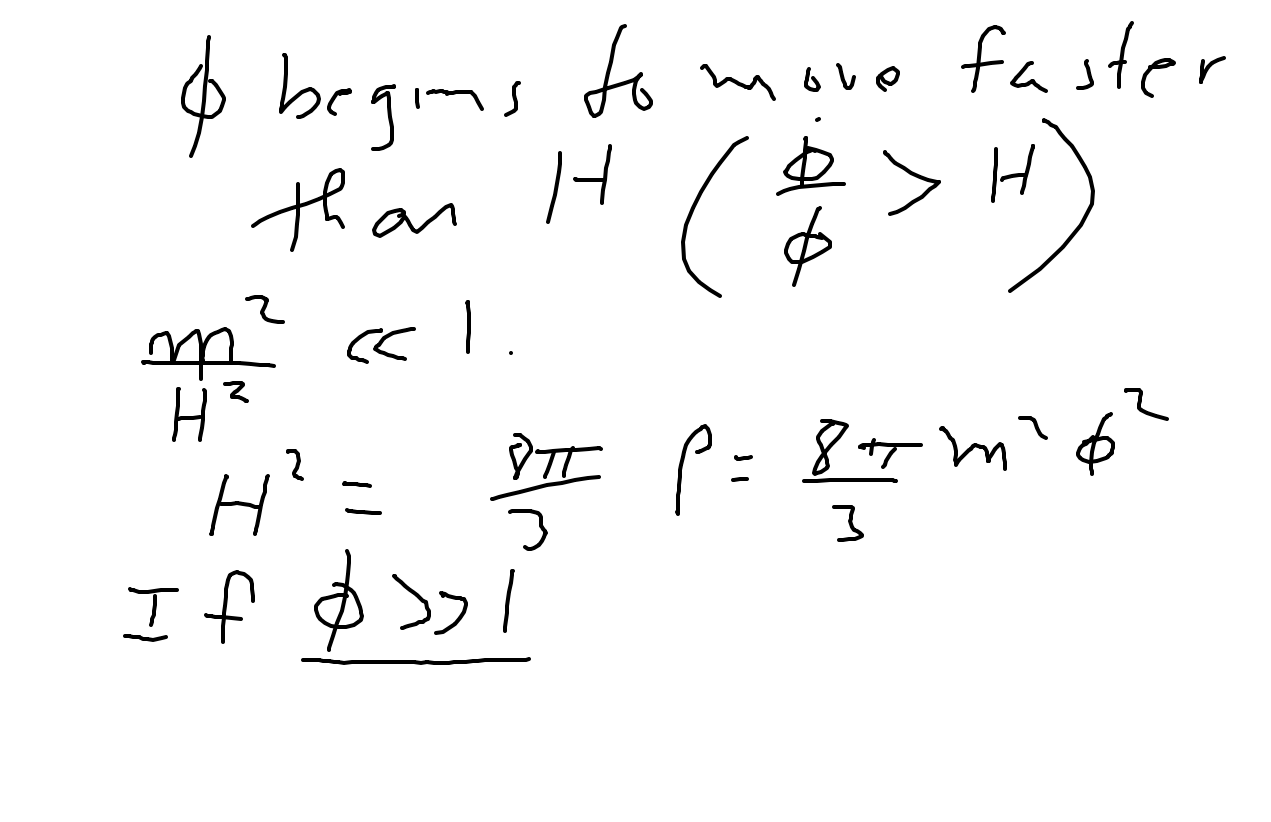 ϕ begins to move faster
than H (ϕ̇/ϕ > H)
m²/H² << 1.
H² = 8π/3 ρ = 8π/3 m² ϕ²
If ϕ >> 1